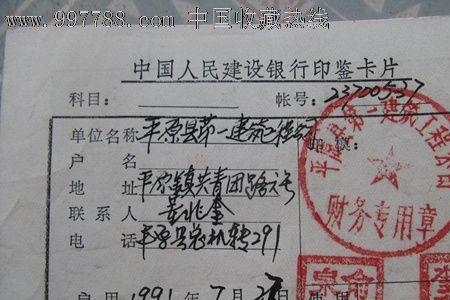 www.997788.com 中国收藏热线
中国人民建设银行印鉴卡片
科目： 帐号：23700537
单位名称 平原县第一建筑工程公司 邮票：
户名
地址 平原镇共青团路六号
联系人 黄兆奎
电话 平原县总机转291
启用 1991年7月2 日 使用
平原县第一建筑工程公司
财务专用章